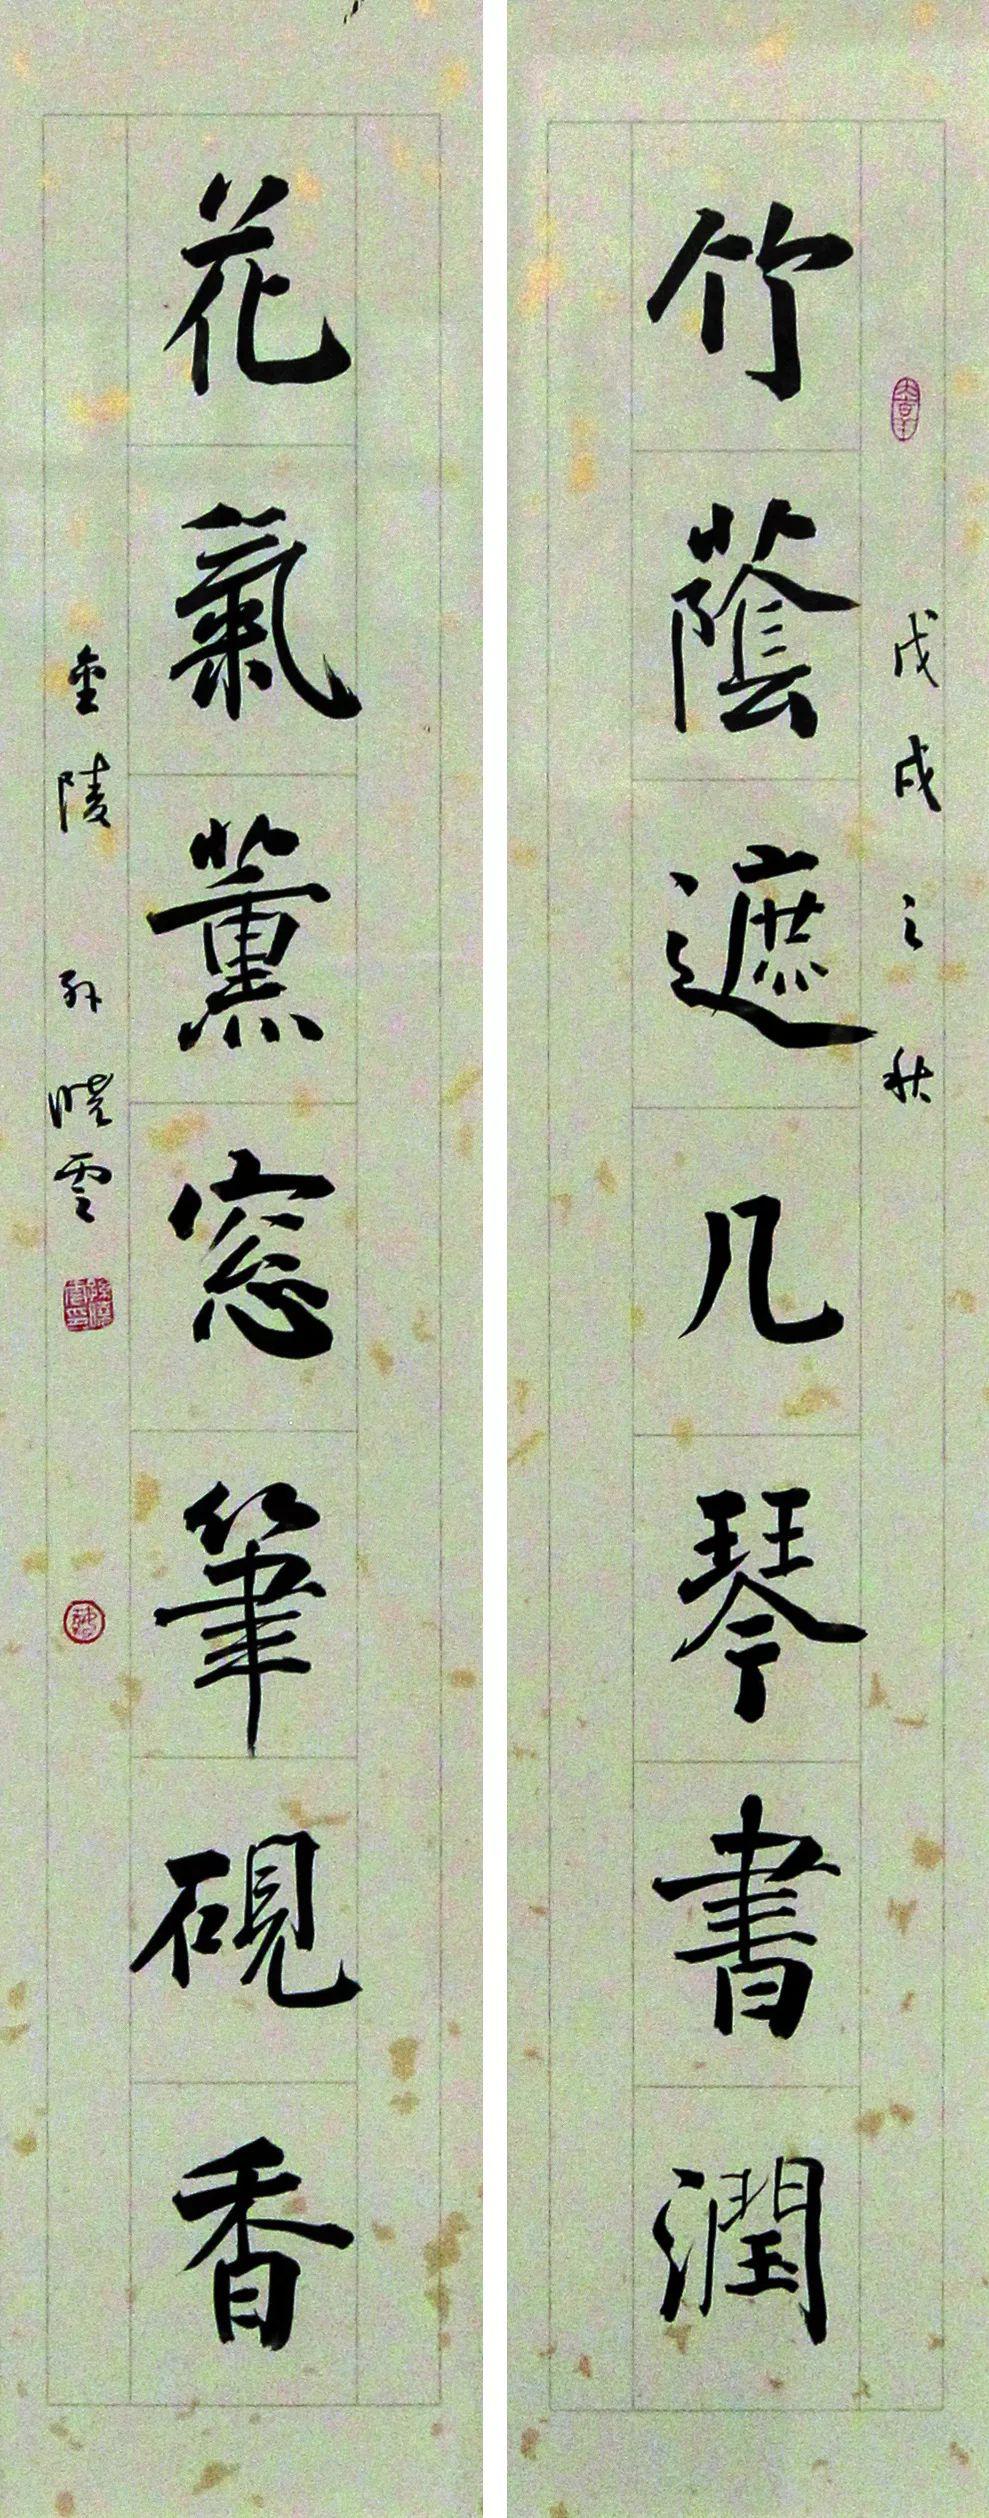 戊戌之秋
竹蔭遮几琴書潤
花氣薰窓筆硯香
金陵 孙晓雲